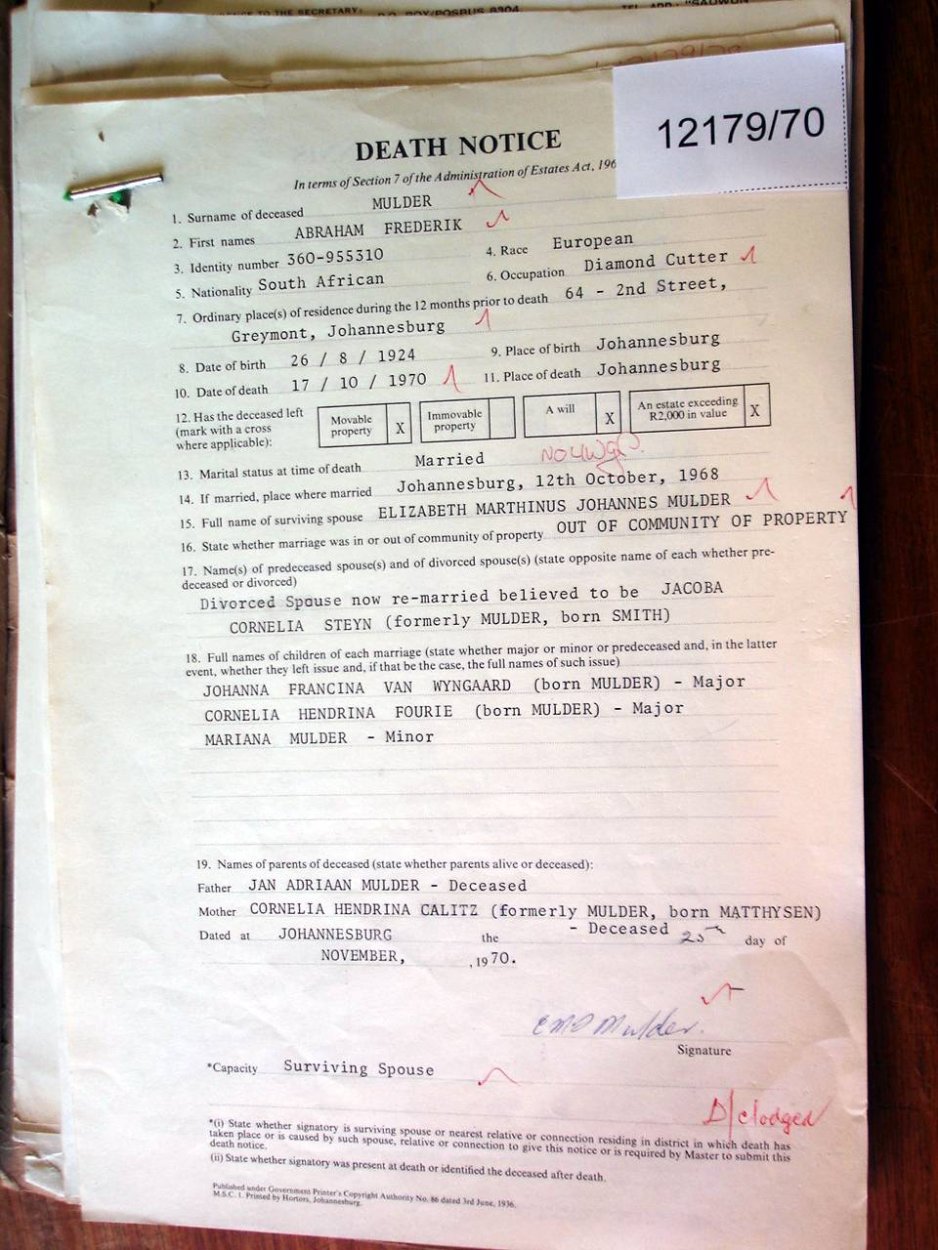 TO THE SECRETARY: P.O. BOX/POSBUS 8304,
12179/70
DEATH NOTICE
In terms of Section 7 of the Administration of Estates Act, 196
1. Surname of deceased MULDER
2. First names ABRAHAM FREDERIK
3. Identity number 360-955310 4. Race European
5. Nationality South African 6. Occupation Diamond Cutter
7. Ordinary place(s) of residence during the 12 months prior to death 64 - 2nd Street,
Greymont, Johannesburg
8. Date of birth 26 / 8 / 1924 9. Place of birth Johannesburg
10. Date of death 17 / 10 / 1970 11. Place of death Johannesburg
12. Has the deceased left (mark with a cross where applicable): Movable property X Immovable property A will X An estate exceeding R2,000 in value X
13. Marital status at time of death Married
14. If married, place where married Johannesburg, 12th October, 1968
15. Full name of surviving spouse ELIZABETH MARTHINUS JOHANNES MULDER
16. State whether marriage was in or out of community of property OUT OF COMMUNITY OF PROPERTY
17. Name(s) of predeceased spouse(s) and of divorced spouse(s) (state opposite name of each whether pre-
deceased or divorced)
Divorced Spouse now re-married believed to be JACOBA
CORNELIA STEYN (formerly MULDER, born SMITH)
18. Full names of children of each marriage (state whether major or minor or predeceased and, in the latter
event, whether they left issue and, if that be the case, the full names of such issue)
JOHANNA FRANCINA VAN WYNGAARD (born MULDER) - Major
CORNELIA HENDRINA FOURIE (born MULDER) - Major
MARIANA MULDER - Minor
19. Names of parents of deceased (state whether parents alive or deceased):
Father JAN ADRIAAN MULDER - Deceased
Mother CORNELIA HENDRINA CALITZ (formerly MULDER, born MATTHYSEN)
- Deceased
Dated at JOHANNESBURG the 25th day of
NOVEMBER, ,1970.
EMJ Mulder.
Signature
*Capacity Surviving Spouse
D/c lodged
*(i) State whether signatory is surviving spouse or nearest relative or connection residing in district in which death has
taken place or is caused by such spouse, relative or connection to give this notice or is required by Master to submit this
death notice.
(ii) State whether signatory was present at death or identified the deceased after death.
Published under Government Printer's Copyright Authority No. 86 dated 3rd June, 1936.
M.S.C. 1. Printed by Hortors, Johannesburg.